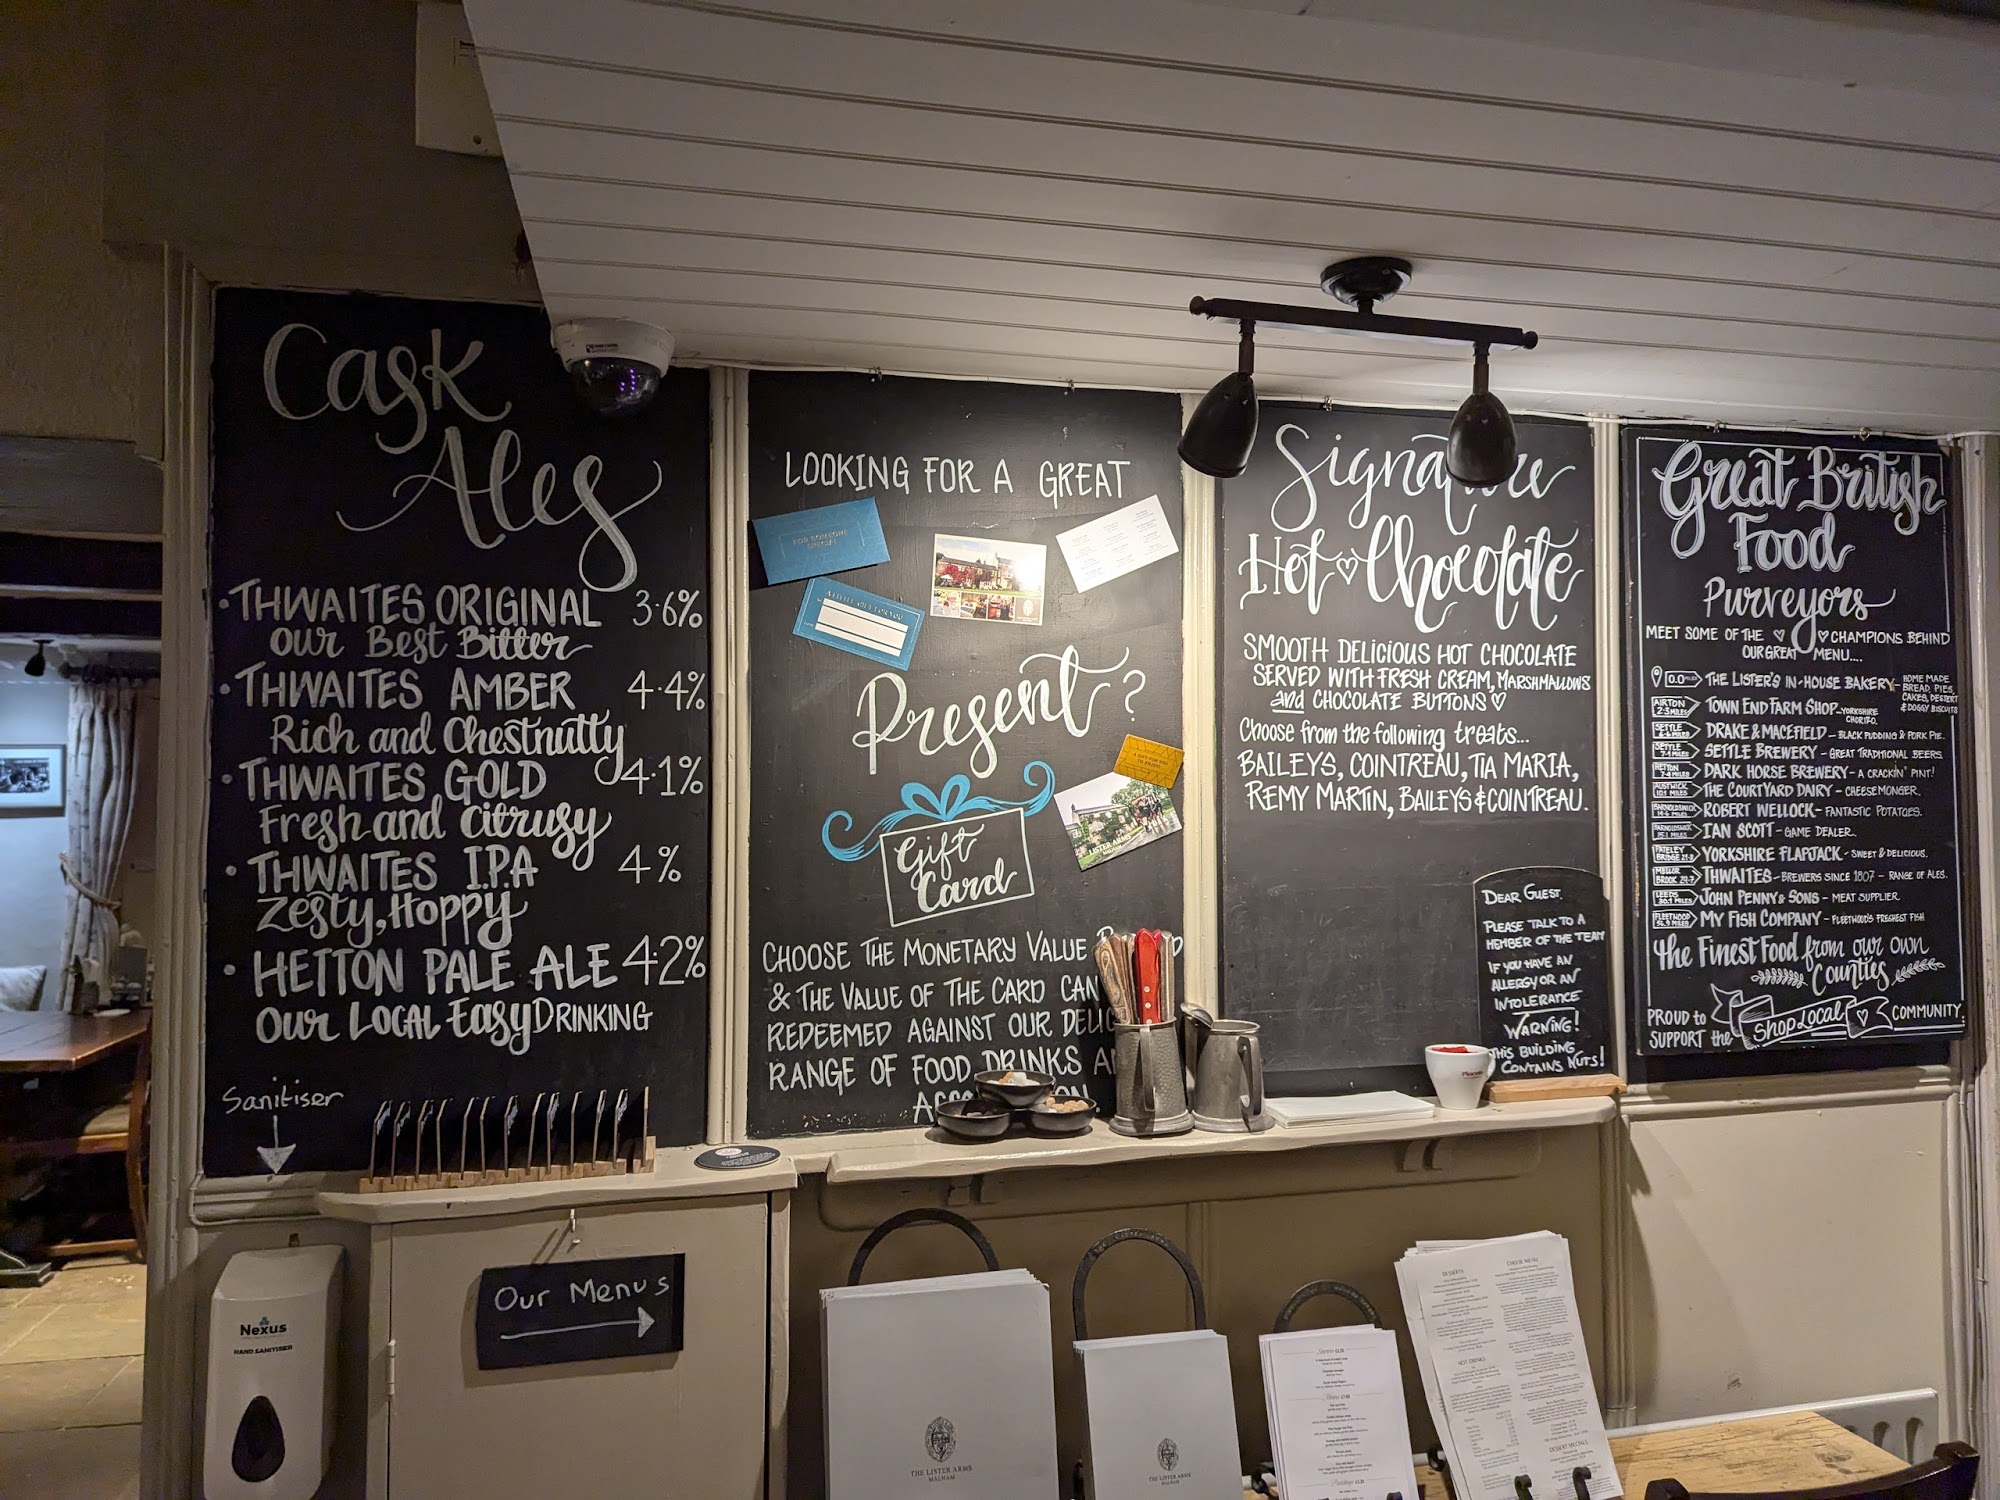 Cask
Ales
· THWAITES ORIGINAL 3·6%
our Best Bitter
· THWAITES AMBER 4·4%
Rich and Chestnutty
· THWAITES GOLD 4·1%
Fresh and Citrusy
· THWAITES I.P.A 4%
Zesty, Hoppy
· HETTON PALE ALE 4.2%
our LOCAL Easy DRINKING
Sanitiser
LOOKING FOR A GREAT
FOR SOMEONE
SPECIAL
Present?
A GIFT FOR YOU
TO ENJOY!
LISTER ARMS
MALHAM
Gift
Card
CHOOSE THE MONETARY VALUE
& THE VALUE OF THE CARD CAN
REDEEMED AGAINST OUR
RANGE OF FOOD DRINKS
Signature
Hot Chocolate
SMOOTH DELICIOUS HOT CHOCOLATE
SERVED WITH FRESH CREAM, MARSHMALLOWS
and CHOCOLATE BUTTONS
Choose from the following treats...
BAILEYS, COINTREAU, TIA MARIA,
REMY MARTIN, BAILEYS & COINTREAU.
DEAR GUEST.
PLEASE TALK TO A
MEMBER OF THE TEAM
IF YOU HAVE AN
ALLERGY OR AN
INTOLERANCE
WARNING!
THIS BUILDING
CONTAINS NUTS!
Great British
Food
Purveyors
MEET SOME OF THE CHAMPIONS BEHIND
OUR GREAT MENU....
0.0 MILES THE LISTER'S IN-HOUSE BAKERY - HOME MADE
BREAD, PIES,
CAKES, DESSERT
& DOGGY BISCUITS
AIRTON
2·3 MILES TOWN END FARM SHOP - YORKSHIRE
CHORIZO.
SETTLE
DRAKE & MACEFIELD - BLACK PUDDING & PORK PIE.
SETTLE
SETTLE BREWERY - GREAT TRADITIONAL BEERS
HETTON
DARK HORSE BREWERY - A CRACKIN' PINT!
AUSTWICK
THE COURTYARD DAIRY - CHEESEMONGER.
BARNOLDSWICK
ROBERT WELLOCK - FANTASTIC POTATOES.
BARNOLDSWICK
IAN SCOTT - GAME DEALER.
PATELEY
BRIDGE YORKSHIRE FLAPJACK - SWEET & DELICIOUS.
MELLOR
BROOK THWAITES - BREWERS SINCE 1807 - RANGE OF ALES.
LEEDS
JOHN PENNY & SONS - MEAT SUPPLIER
FLEETWOOD
MY FISH COMPANY - FLEETWOOD'S FRESHEST FISH
the FINEST FOOD from our own
Counties
PROUD to
SUPPORT the Shop Local COMMUNITY
Nexus
HAND SANITISER
Our Menus
THE LISTER ARMS
MALHAM
THE LISTER ARMS
MALHAM
DESSERTS
CHEESE MENU
HOT DRINKS
DESSERT SPECIALS